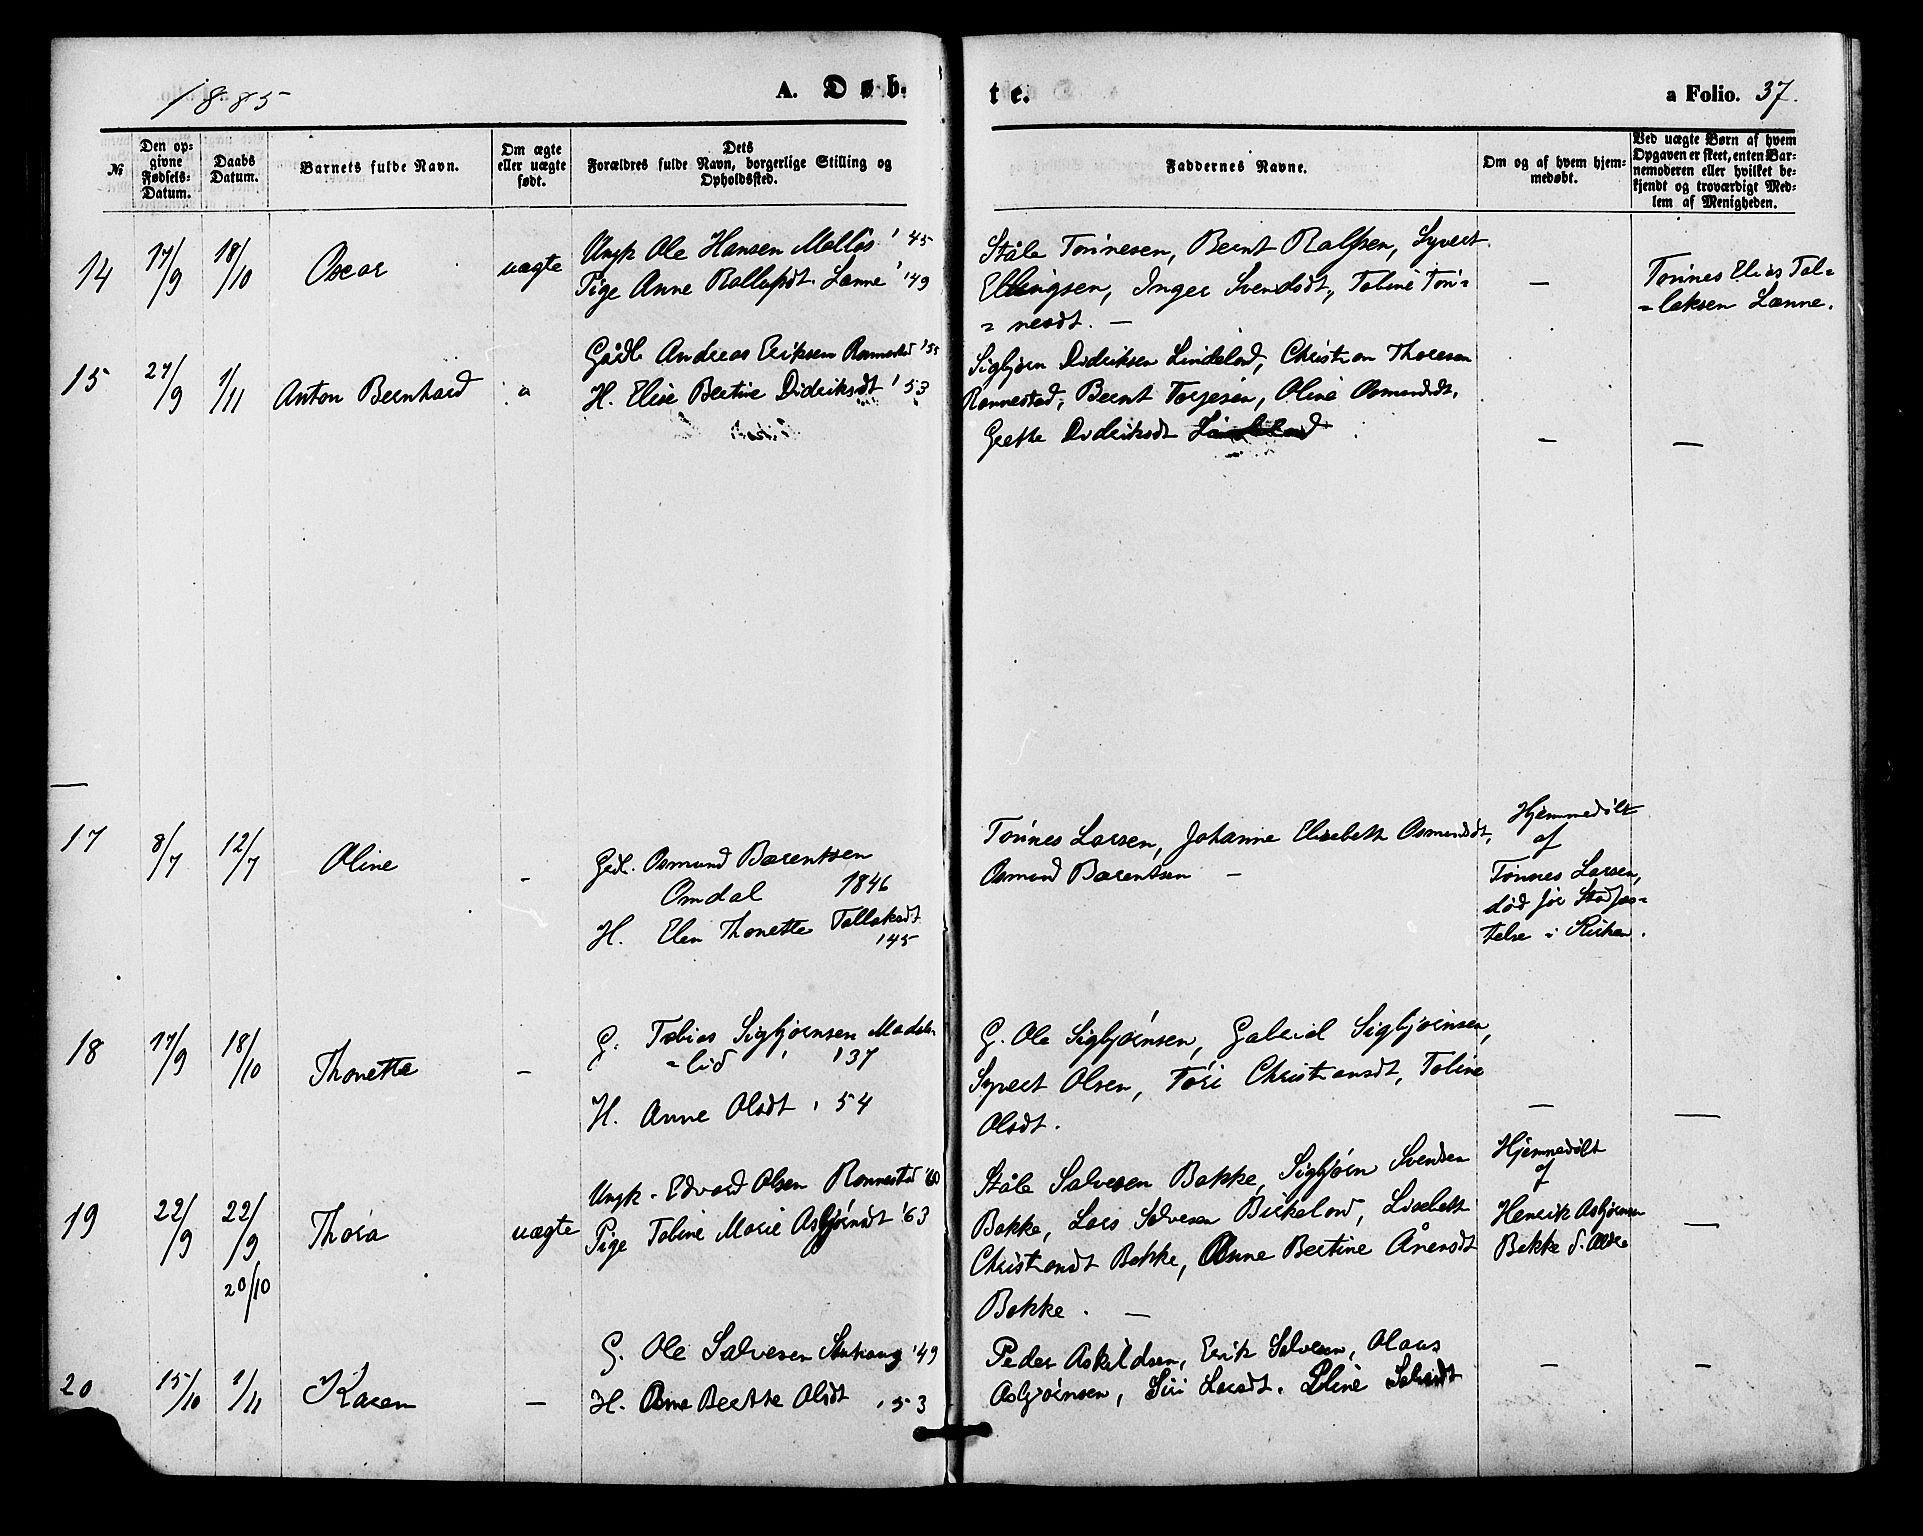 1885
A. Døb-
te.
a Folio. 37.
№
Den op-
givne
Fødsels-
Datum.
Daabs
Datum.
Barnets fulde Navn.
Om ægte
eller uægte
født.
Dets
Forældres fulde Navn, borgerlige Stilling og
Opholdssted.
Faddernes Navne.
Om og af hvem hjem-
medøbt.
Ved uægte Børn af hvem
Opgaven er skeet, enten Bar-
nemoderen eller hvilket be-
kjendt og troværdigt Med-
lem af Menigheden.
14
17/9
18/10
Oscar
uægte
Ungk Ole Hansen '45
Pige Anne '49
Ståle Tønnesen, Bernt Rolfsen, Syvert
Ellingsen, Inger Svendsdt., Tobine Tøn=
= nesdt. —
—
Tønnes Elias Tal=
= laksen Lænne.
15
27/9
1/11
Anton Bernhard
Gådb Andreas Eriksen Ronnestad '55
H. Elise Bertine Didriksdt '53
Sigbjørn Didriksen Lindeland, Christian Thoresen
Ronnestad, Bernt Torjesen, Oline Osmundsdt.
Grethe Didriksdt Lindeland
—
—
17
8/7
12/7
Oline
-
Gdl. Osmund Barentsen
Omdal 1846
H. Elen Thonette Tallaksdt
'45
Tønnes Larsen, Johanne Elisabeth Osmundsdt,
Osmund Barentsen —
Hjemmedøbt
af
Tønnes Larsen,
død før Stadfæs=
telse i Kirken.
18
17/9
18/10
Thonette
—
G. Tobias Sigbjørnsen
=lid '37
H. Anne Olsdt '54
G. Ole Sigbjørnsen, Gabriel Sigbjørnsen,
Syvert Olsen, Tori Christiansdt, Tobine
Olsdt.
—
—
19
22/9
22/9
20/10
Thora
uægte
Ungk. Edvard Olsen Ronnestad '60
Pige Tobine Marie Asbjørnsdt '63
Ståle Salvesen Bakke, Sigbjørn Svendsen
Bakke, Lars Salvesen Birkeland, Lisebeth
Christiansdt Bakke, Anne Bertine Ånensdt
Bakke. —
Hjemmedøbt
af
Henrik Asbjørnsen
Bakke d. Ældre
—
20
15/10
1/11
Karen
—
G. Ole Salvesen '49
H. Berthe Olsdt '53
Peder Askildsen, Erik Salvesen, Olaus
Asbjørnsen, Siri Larsdt. Eline
—
—